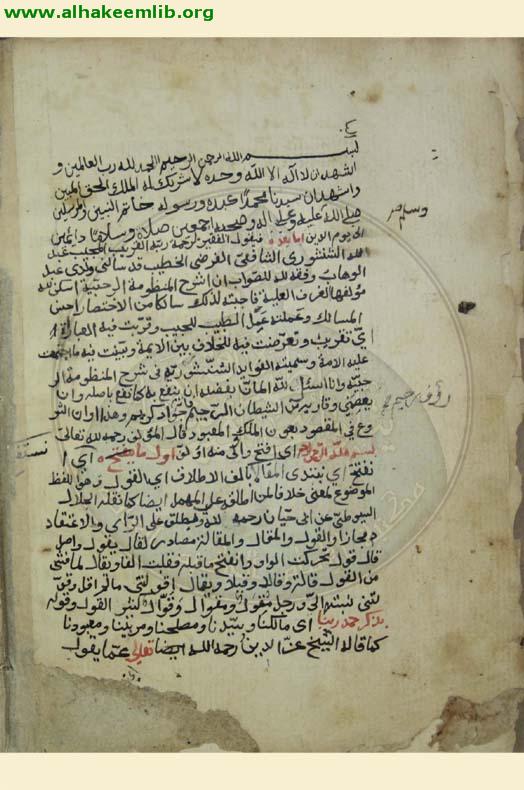 www.alhakeemlib.org
بسم الله الرحمن الرحيم الحمد لله رب العالمين و
اشهد ان لا اله الا الله وحده لا شريك له الملك الحق المبين
واشهد ان سيدنا محمدا عبده ورسوله خاتم النبين والمرسلين
صلى الله عليه وعلى اله وصحبه اجمعين صلاة وسلاما دايمين
وسلم
الى يوم الدين اما بعد فيقول الفقير لرحمة ربه القريب المجيب عبد
الله الشنشوري الشافعي الفرضي الخطيب قد سالني ولدي عبد
الوهاب وفقه الله للصواب ان اشرح المنظومة الرحبية اسكن الله
مؤلفها الغرف العلية فاجبته لذلك سالكا من الاختصار احسن
المسالك وعملته عمل الطبيب للحبيب وقربت فيه العبارة ا
اي تقريب وتعرضت فيه للخلاف بين الائمة وبينت فيه ما اجتمعت
عليه الامة وسميته الفوايد الشنشورية في شرح المنظومة الر
حبية وانا اسئل الله المنان بفضله ان ينفع به كما نفع باصله وان
يعصمني وقاريه من الشيطان الرجيم كريم وهذا اوان الشر
رؤف رحيم
وع في المقصود بعون الملك المعبود قال المؤلف رحمه الله تعالى
بسم الله الرحمن الرحيم اي افتح اول ما نستفتح اي ا
نستفتح
نفتح اي نبتدي المقالا بالف الاطلاق اي القول وهو اللفظ
الموضوع لمعنى خلافا لمن اطلقه على المهمل ايضا كما نقله الجلال
السيوطي عن ابي حيان رحمه الله ويطلق على الراي والاعتقاد
مجازا والقول والمقال والمقالة مصادر لقال يقول واصل
قال قول تحركت الواو وانفتح ما قبلها فقلبت الفا ويقال لما فشى
من القول قالة وقال وقيل ويقال اقولتني ما لم اقل وقو
لتني نسبته الي ورجل مقول ومقوال وقوال كثير القول وقوله
بذكر حمد ربنا اي مالكنا وسيدنا ومصلحنا ومربينا ومعبودنا
كما قاله الشيخ عز الدين رحمه الله ايضا تعالى عما يقول